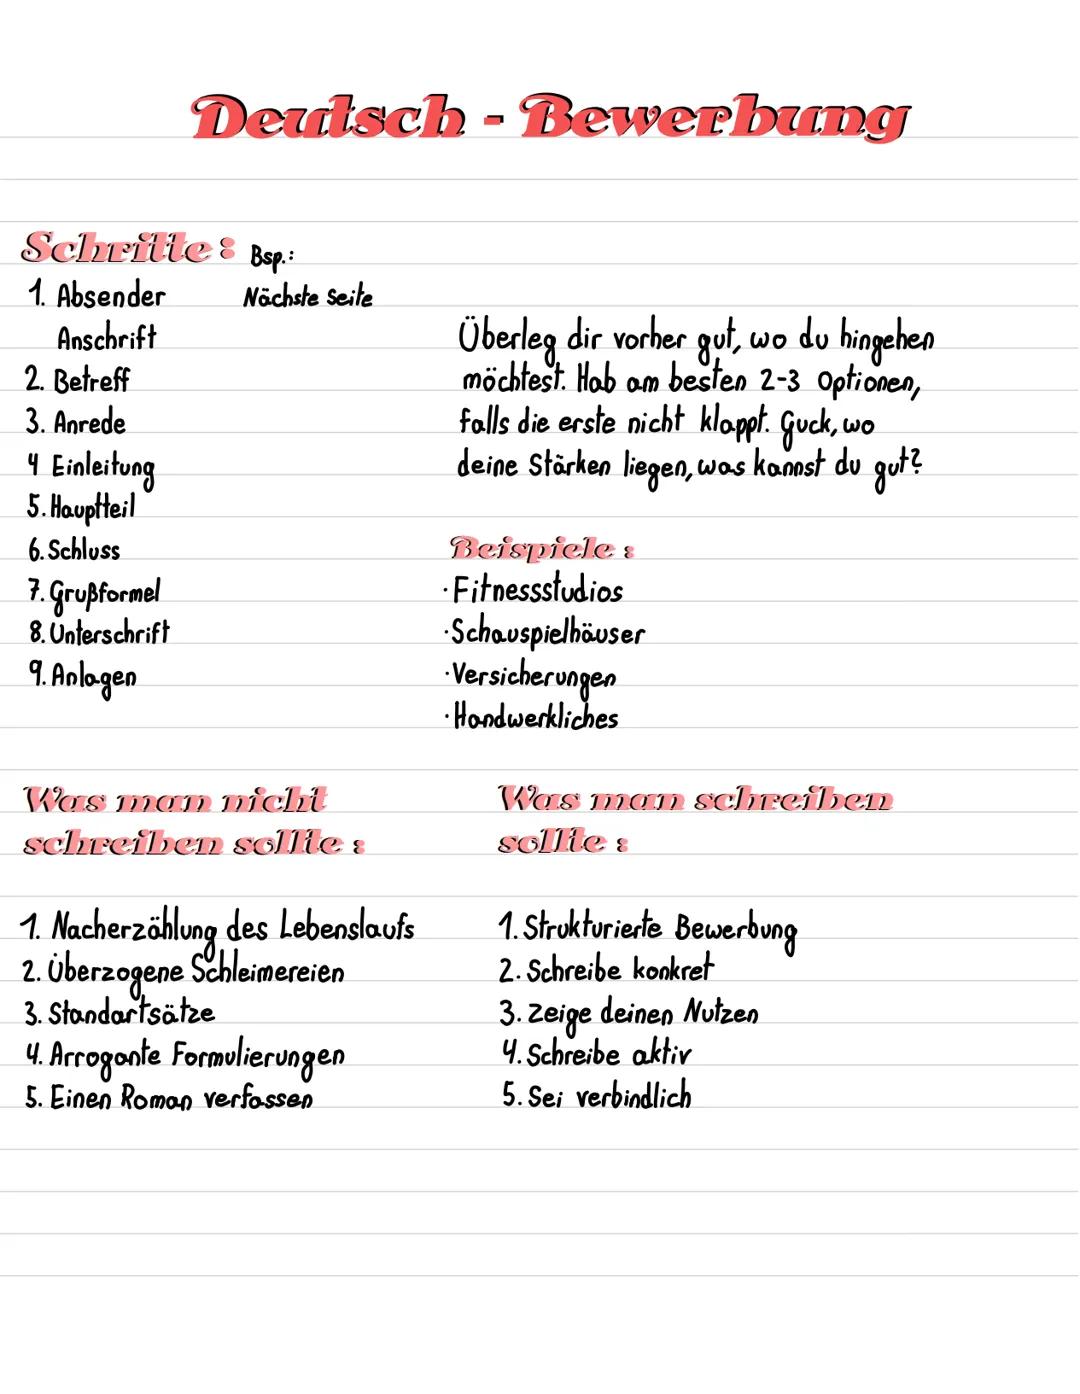 Deutsch - Bewerbung
Schritte: Bsp.:
1. Absender Nächste Seite
Anschrift
2. Betreff
3. Anrede
4 Einleitung
5. Hauptteil
6. Schluss
7. Grußformel
8. Unterschrift
9. Anlagen
Überleg dir vorher gut, wo du hingehen
möchtest. Hab am besten 2-3 Optionen,
falls die erste nicht klappt. Guck, wo
deine Stärken liegen, was kannst du gut?
Beispiele:
· Fitnessstudios
· Schauspielhäuser
· Versicherungen
· Handwerkliches
Was man nicht
schreiben sollte:
1. Nacherzählung des Lebenslaufs
2. Überzogene Schleimereien
3. Standartsätze
4. Arrogante Formulierungen
5. Einen Roman verfassen
Was man schreiben
sollte:
1. Strukturierte Bewerbung
2. Schreibe konkret
3. Zeige deinen Nutzen
4. Schreibe aktiv
5. Sei verbindlich